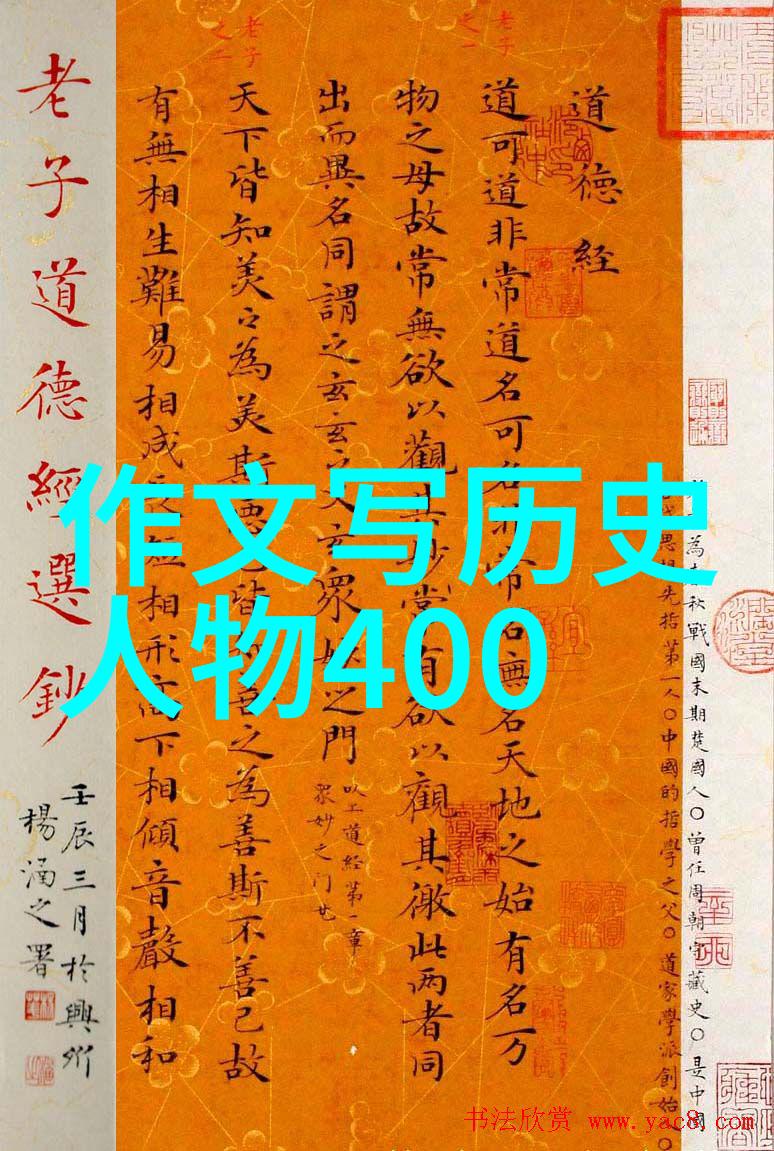 老子道德經選鈔
壬辰三月於興化
楊涵之署
老子之一
道德经
道可道非常道名可名非常名無名天地之始有名万
物之母故常無欲以觀其妙常有欲以觀其徼此两者同
出而異名同謂之玄玄之又玄眾妙之門
以上道經第一章
眾妙之门也
老子之二
天下皆知美之為美斯惡已皆知善之為善斯不善已故
有無相生難易相成長短相形高下相傾音聲相和
為春秋戰國末期楚國人〇曾任周朝守藏史〇是中國
思想先指第一人〇中國的哲學之父〇道家學派創始〇
作文写历史
人物400
书法欣赏 www.yac8.com